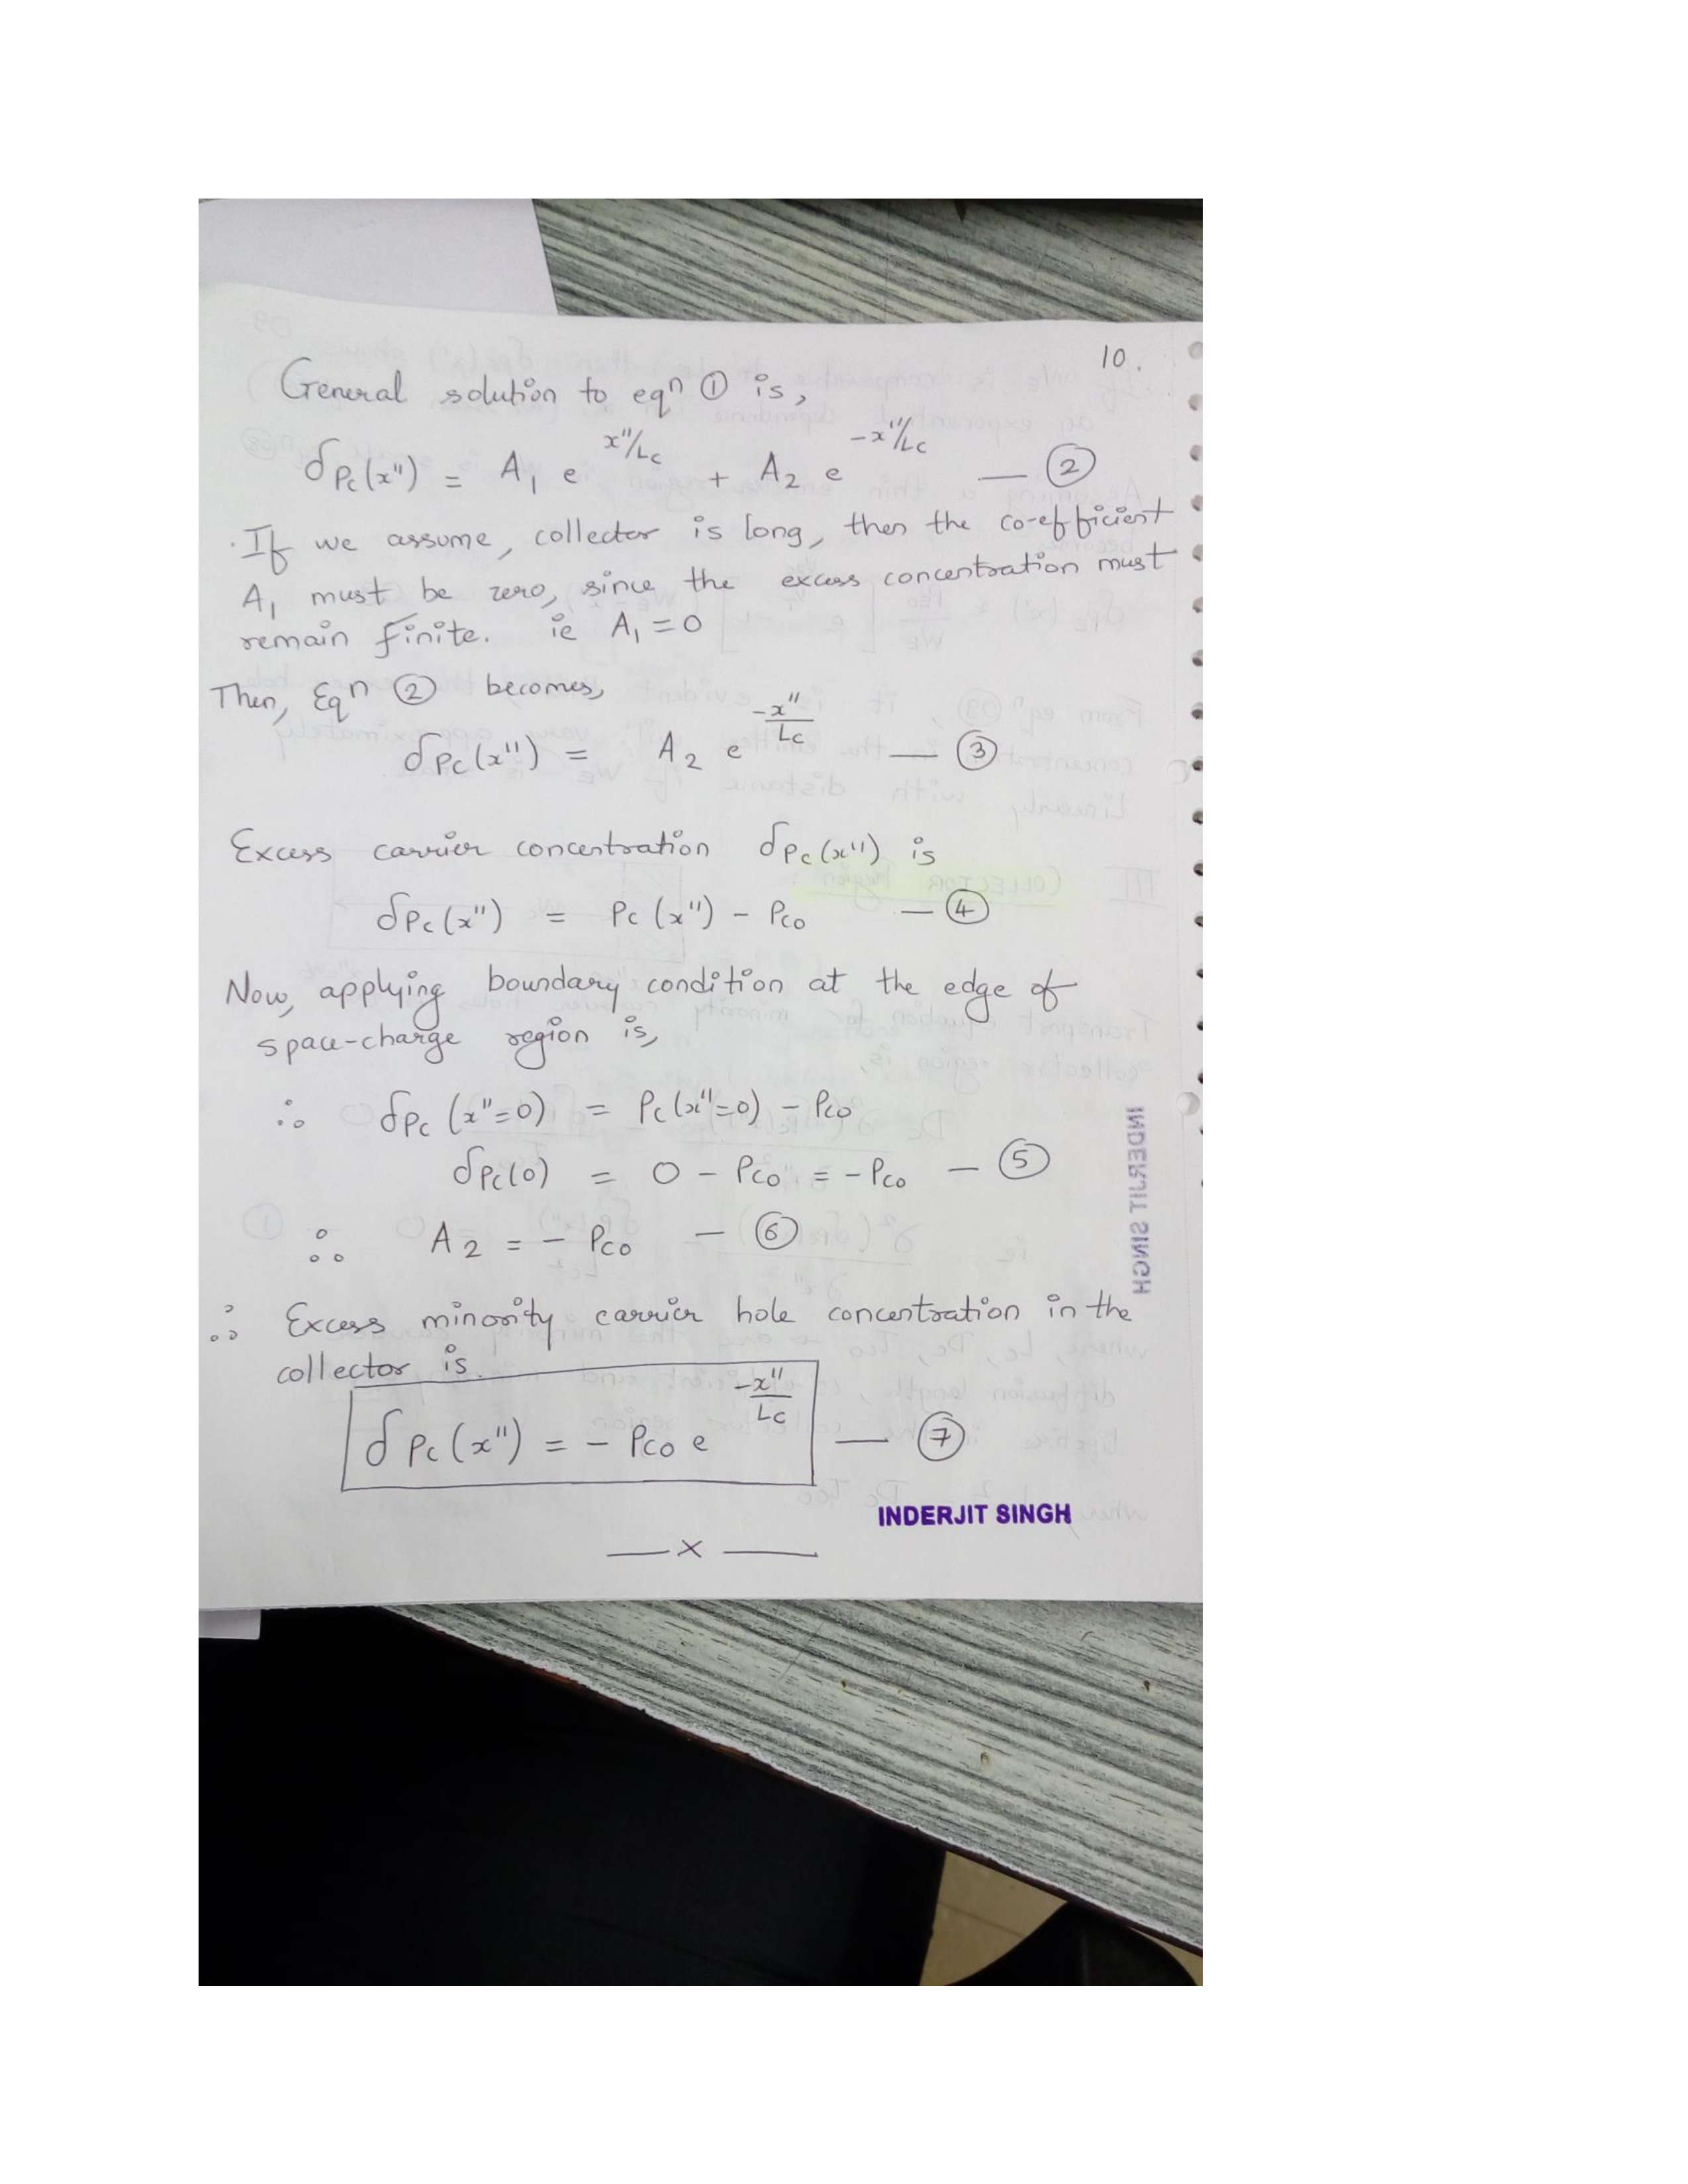 10.
General solution to eqn ① is,
δPc(x") = A1 e^(x"/Lc) + A2 e^(-x"/Lc) — ②
.If we assume, collector is long, then the co-efficient
A1 must be zero, since the excess concentration must
remain finite. ie A1 = 0
Then, Eqn ② becomes,
δPc(x") = A2 e^(-x"/Lc) — ③
Excess carrier concentration δPc(x") is
δPc(x") = Pc(x") - Pco — ④
Now, applying boundary condition at the edge of
space-charge region is,
∴ δPc(x"=0) = Pc(x"=0) - Pco
δPc(0) = 0 - Pco = -Pco — ⑤
∴ A2 = - Pco — ⑥
∴ Excess minority carrier hole concentration in the
collector is.
δPc(x") = - Pco e^(-x"/Lc) — ⑦
INDERJIT SINGH
— x —
INDERJIT SINGH